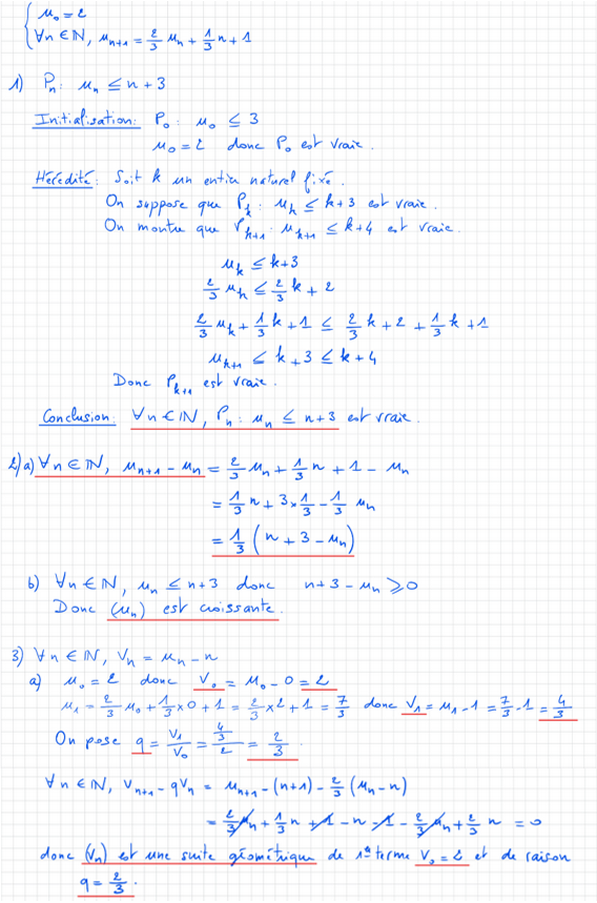 { u₀ = 2
{ ∀n ∈ ℕ, uₙ₊₁ = 2/3 uₙ + 1/3 n + 1
1) Pₙ : uₙ ≤ n + 3
Initialisation: P₀ : u₀ ≤ 3
u₀ = 2 donc P₀ est vraie.
Hérédité: Soit k un entier naturel fixé.
On suppose que Pₖ : uₖ ≤ k+3 est vraie.
On montre que Pₖ₊₁ : uₖ₊₁ ≤ k+4 est vraie.
uₖ ≤ k+3
2/3 uₖ ≤ 2/3 k + 2
2/3 uₖ + 1/3 k + 1 ≤ 2/3 k + 2 + 1/3 k + 1
uₖ₊₁ ≤ k + 3 ≤ k+4
Donc Pₖ₊₁ est vraie.
Conclusion: ∀n ∈ ℕ, Pₙ : uₙ ≤ n+3 est vraie.
2)a) ∀n ∈ ℕ, uₙ₊₁ - uₙ = 2/3 uₙ + 1/3 n + 1 - uₙ
= 1/3 n + 3 × 1/3 - 1/3 uₙ
= 1/3 (n + 3 - uₙ)
b) ∀n ∈ ℕ, uₙ ≤ n+3 donc n+3 - uₙ ⩾ 0
Donc (uₙ) est croissante.
3) ∀n ∈ ℕ, Vₙ = uₙ - n
a) u₀ = 2 donc V₀ = u₀ - 0 = 2
u₁ = 2/3 u₀ + 1/3 × 0 + 1 = 2/3 × 2 + 1 = 7/3 donc V₁ = u₁ - 1 = 7/3 - 1 = 4/3
On pose q = V₁/V₀ = (4/3)/2 = 2/3.
∀n ∈ ℕ, Vₙ₊₁ - qVₙ = uₙ₊₁ - (n+1) - 2/3 (uₙ - n)
= 2/3 uₙ + 1/3 n + 1 - n - 1 - 2/3 uₙ + 2/3 n = 0
donc (Vₙ) est une suite géométrique de 1er terme V₀ = 2 et de raison
q = 2/3.